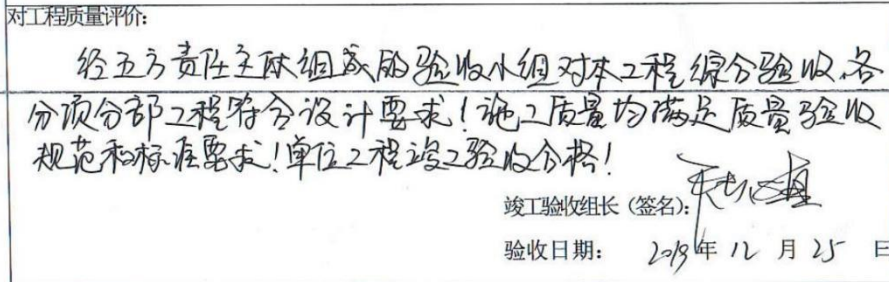 对工程质量评价：
经五方责任主体组成的验收小组对本工程综合验收，各
分项分部工程符合设计要求！施工质量均满足质量验收
规范和标准要求！单位工程竣工验收合格！
竣工验收组长（签名）：
验收日期： 2019年 12 月 25 日